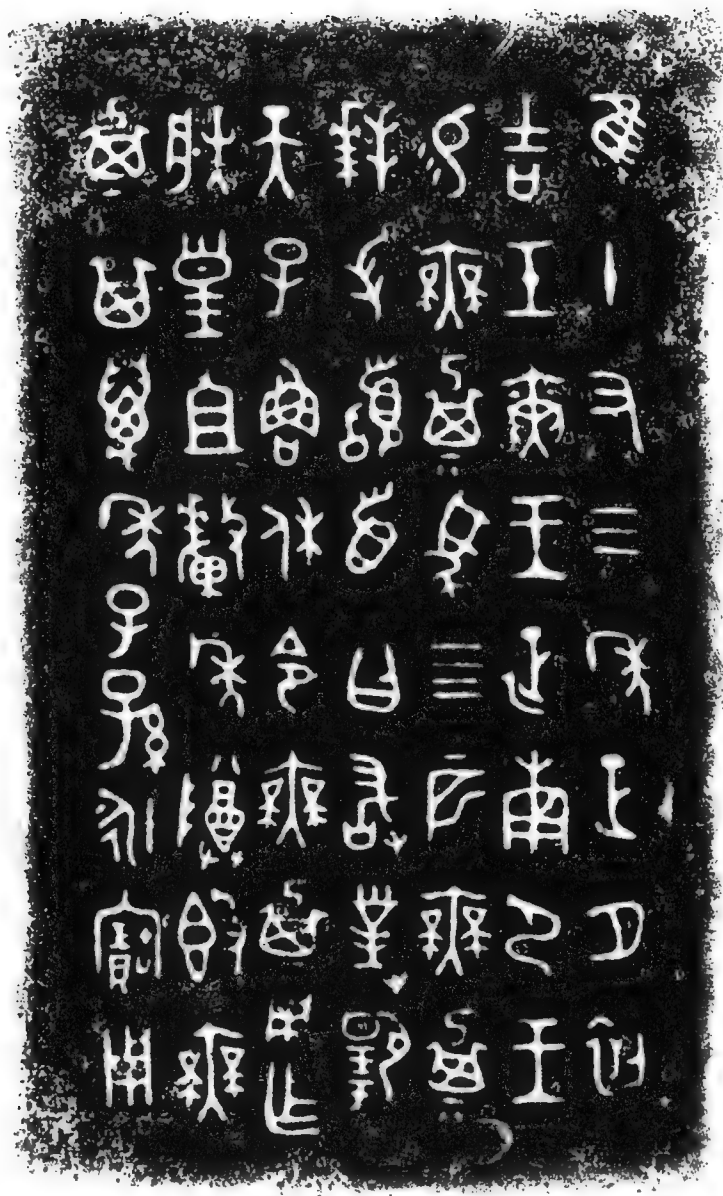 隹十又三年正月初
吉壬寅王征南尸王
易無㠱馬四匹無㠱
拜手𩒨首曰敢對揚
天子魯休令無㠱用乍
朕皇且釐季𬯚𣪘無
㠱其萬年子孫永寶用